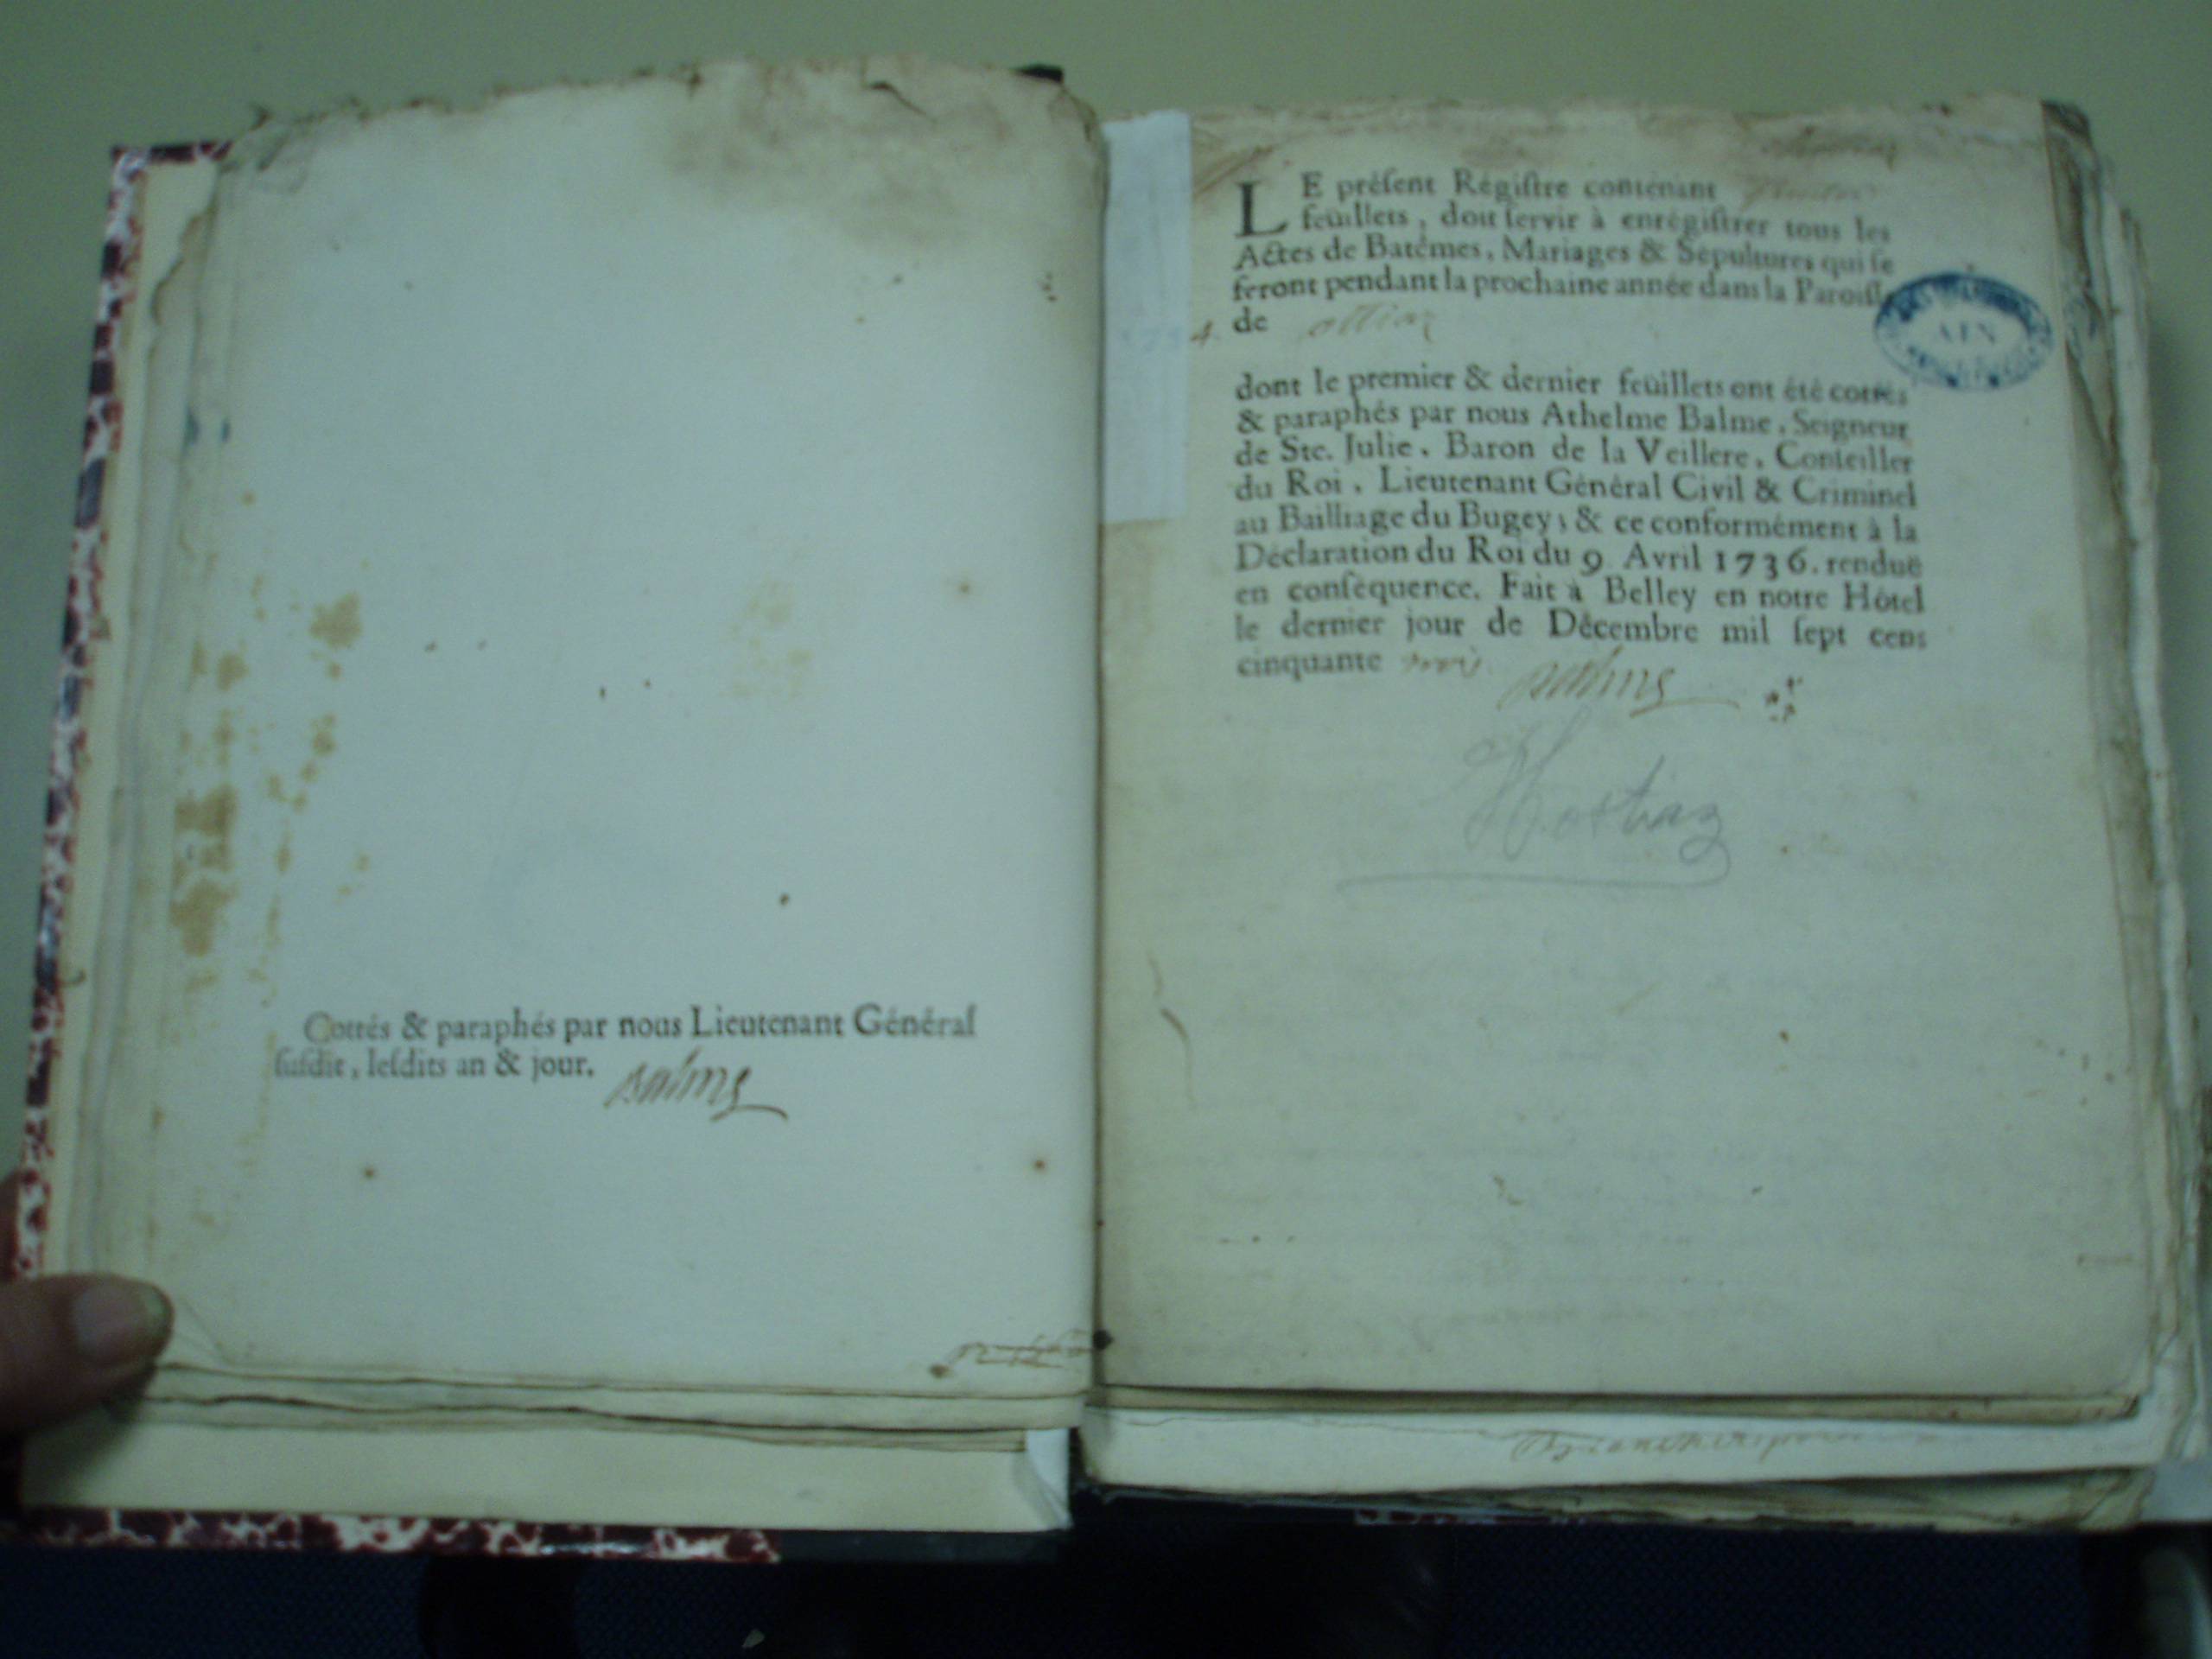 Cottés & paraphés par nous Lieutenant Général
ſuſdit, leſdits an & jour. Balme
LE préſent Régiſtre contenant
feüillets, doit ſervir à enrégiſtrer tous les
Actes de Batêmes, Mariages & Sépultures qui ſe
feront pendant la prochaine année dans la Paroiſſe
de ottiaz
AIN
dont le premier & dernier feüillets ont été cottés
& paraphés par nous Athelme Balme, Seigneur
de Ste. Julie, Baron de la Veillere, Conſeiller
du Roi, Lieutenant Général Civil & Criminel
au Bailliage du Bugey; & ce conformément à la
Déclaration du Roi du 9. Avril 1736. renduë
en conſéquence. Fait à Belley en notre Hôtel
le dernier jour de Décembre mil ſept cens
cinquante trois. Balme
Hostiaz